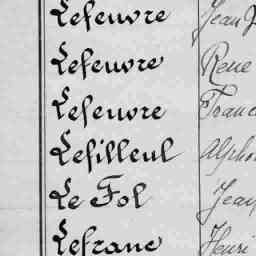 Lefeuvre Jean
Lefeuvre René
Lefeuvre Franc
Lefilleul Alpho
Le Fol Jean
Lefranc Henri